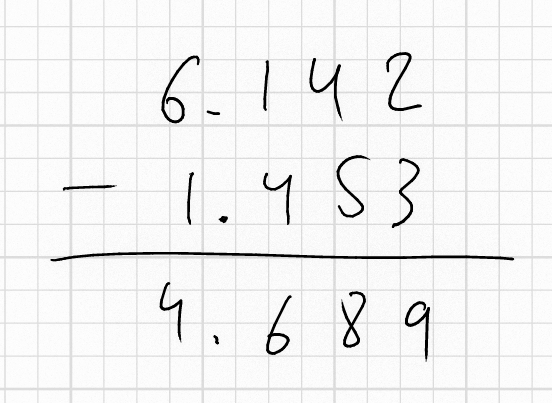 6.142
- 1.453
4.689